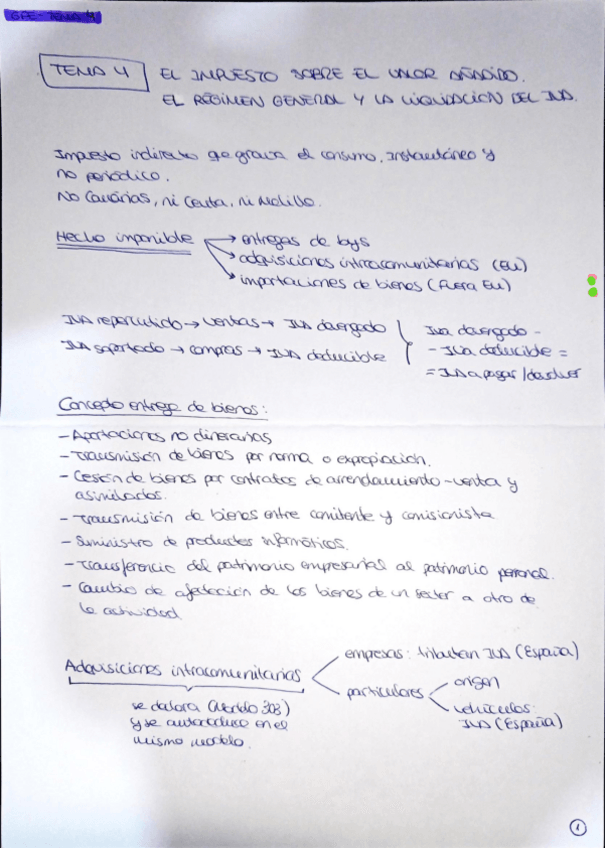 GFE - TEMA 4
TEMA 4 EL IMPUESTO SOBRE EL VALOR AÑADIDO.
EL RÉGIMEN GENERAL Y LA LIQUIDACIÓN DEL IVA.
Impuesto indirecto que grava el consumo. Instantáneo y
no periódico.
No Canarias, ni Ceuta, ni Melilla.
Hecho imponible → entregas de bys
→ adquisiciones intracomunitarias (EU)
→ importaciones de bienes (Fuera EU)
IVA repercutido → ventas → IVA devengado
IVA soportado → compras → IVA deducible
Iva devengado -
- IVA deducible =
= IVA a pagar/devolver
Concepto entrega de bienes:
- Aportaciones no dinerarias
- Transmisión de bienes por norma o expropiación.
- Cesión de bienes por contratos de arrendamiento-venta y
asimilados.
- Transmisión de bienes entre comitente y comisionista
- Suministro de productos informáticos.
- Transferencia del patrimonio empresarial al patrimonio personal.
- Cambio de afectación de los bienes de un sector a otro de
la actividad
Adquisiciones intracomunitarias
empresas: tributan IVA (España)
particulares
origen
vehículos:
IVA (España)
se declara (Modelo 303)
y se autodeduce en el
mismo modelo.
1